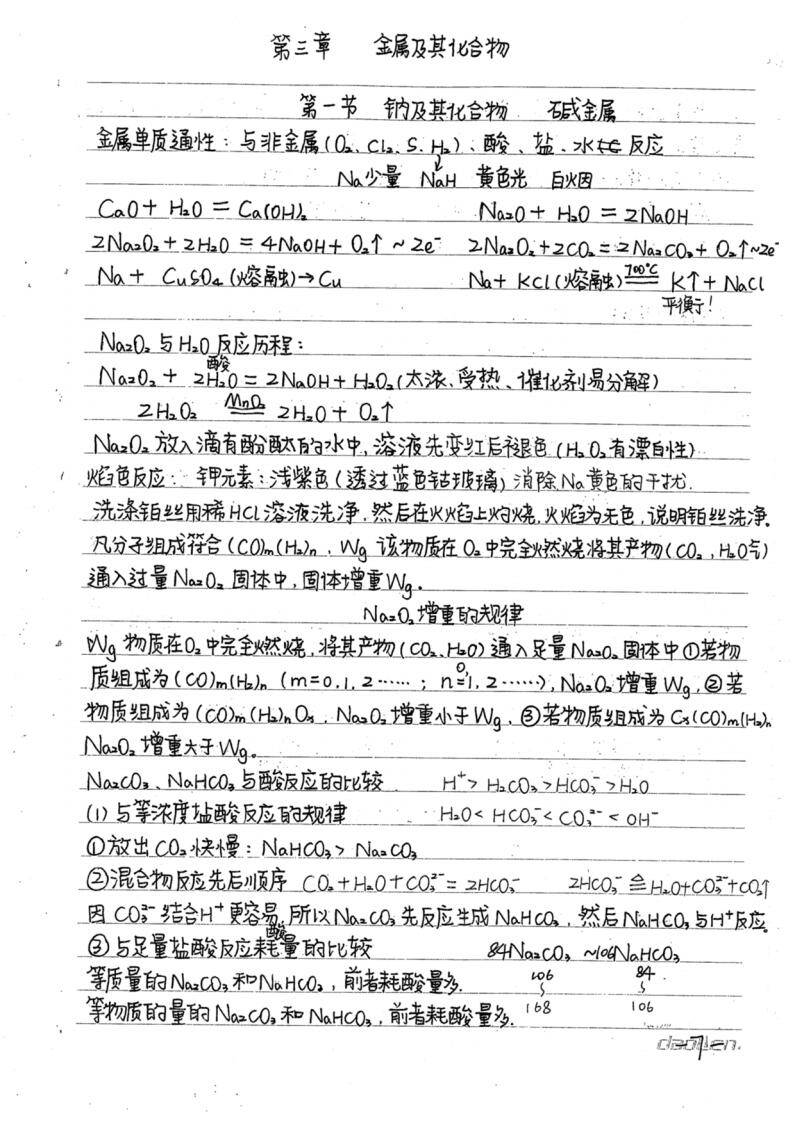 第三章 金属及其化合物
第一节 钠及其化合物 碱金属
金属单质通性：与非金属(O₂、Cl₂、S、H₂)、酸、盐、水 反应
Na少量 NaH 黄色光 白火因
CaO + H₂O = Ca(OH)₂ Na₂O + H₂O = 2NaOH
2Na₂O₂ + 2H₂O = 4NaOH + O₂↑ ~ 2e⁻ 2Na₂O₂ + 2CO₂ = 2Na₂CO₃ + O₂↑ ~ 2e⁻
Na + CuSO₄ (熔融) → Cu Na + KCl (熔融) 700℃ ═ K↑ + NaCl
平衡！
Na₂O₂ 与 H₂O 反应历程：
酸
Na₂O₂ + 2H₂O = 2NaOH + H₂O₂ (太浓、受热、催化剂易分解)
2H₂O₂ MnO₂ ═ 2H₂O + O₂↑
Na₂O₂ 放入滴有酚酞的水中，溶液先变红后褪色 (H₂O₂有漂白性)
焰色反应：钾元素：浅紫色 (透过蓝色钴玻璃) 消除Na黄色的干扰.
洗涤铂丝用稀HCl溶液洗净，然后在火焰上灼烧，火焰为无色，说明铂丝洗净。
凡分子组成符合 (CO)m(H₂)n，Wg 该物质在O₂中完全燃烧将其产物(CO₂，H₂O气)
通入过量Na₂O₂固体中，固体增重Wg。
Na₂O₂增重的规律
Wg 物质在O₂中完全燃烧，将其产物(CO₂、H₂O)通入足量Na₂O₂固体中①若物
质组成为(CO)m(H₂)n (m=0.1.2……；n=0,1.2……)，Na₂O₂增重Wg，②若
物质组成为(CO)m(H₂)nOx，Na₂O₂增重小于Wg，③若物质组成为Cx(CO)m(H₂)n
Na₂O₂增重大于Wg。
Na₂CO₃、NaHCO₃与酸反应的比较 H⁺ > H₂CO₃ > HCO₃⁻ > H₂O
(1)与等浓度盐酸反应的规律 H₂O < HCO₃⁻ < CO₃²⁻ < OH⁻
①放出CO₂快慢：NaHCO₃ > Na₂CO₃
②混合物反应先后顺序 CO₂ + H₂O + CO₃²⁻ = 2HCO₃⁻ 2HCO₃⁻ ≜ H₂O + CO₃²⁻ + CO₂↑
因CO₃²⁻结合H⁺更容易，所以Na₂CO₃先反应生成NaHCO₃，然后NaHCO₃与H⁺反应。
酸
③与足量盐酸反应耗量的比较 84Na₂CO₃ ~106NaHCO₃
等质量的Na₂CO₃和NaHCO₃，前者耗酸量多. 106 84
等物质的量的Na₂CO₃和NaHCO₃，前者耗酸量多. 168 106
-7-